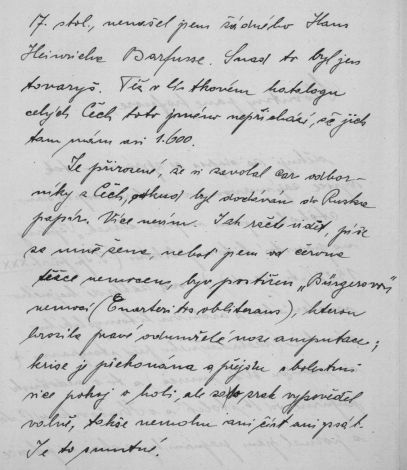 17. stol., nenašel jsem žádného Hans
Heinricha Barfusse. Snad to byl jen
tovaryš. Též v lístkovém katalogu
celých Čech, toto jméno nepřichází, ač jich
tam mám asi 1.600.
Je přirozené, že si zavolal car odbor-
níky z Čech, odkud byl dodáván do Ruska
papír. Více nevím. Jak ráčíte vidět, píše
za mne žena, neboť jsem od června
těžce nemocen, byv postižen „Bürgerovou"
nemocí (Enarteritis obliterans), kterou
hrozila pravé odumřelé noze amputace;
krise je překonána a přejdu s bolestmi
více pokoj o holi, ale zato zrak vypověděl
valně, takže nemohu ani číst ani psát.
Je to smutné.